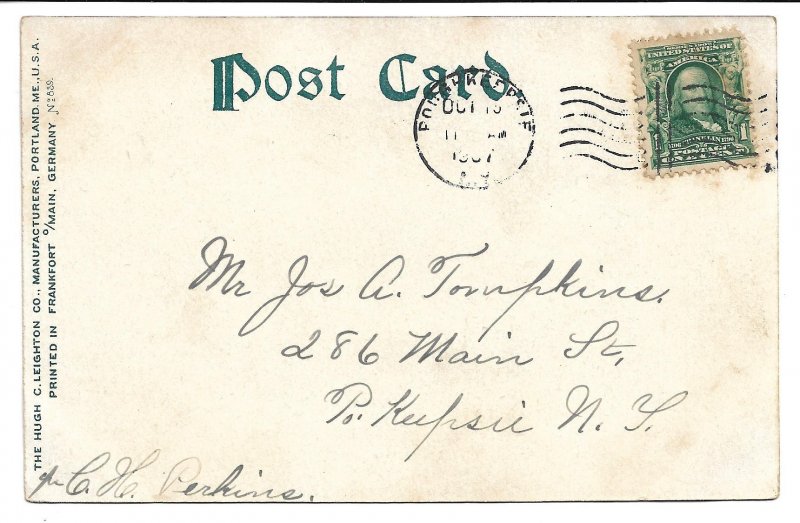 Post Card
POUGHKEEPSIE
OCT 15
11 AM
1907
N.Y.
SERIES 1902
UNITED STATES OF
AMERICA
FRANKLIN
1706 1790
1 1
POSTAGE
ONE CENT
Mr Jos A. Tompkins.
286 Main St,
Po. Keepsie N. Y.
C. H. Perkins.
THE HUGH C. LEIGHTON CO., MANUFACTURERS, PORTLAND, ME., U.S.A.
PRINTED IN FRANKFORT o/MAIN, GERMANY No 639.